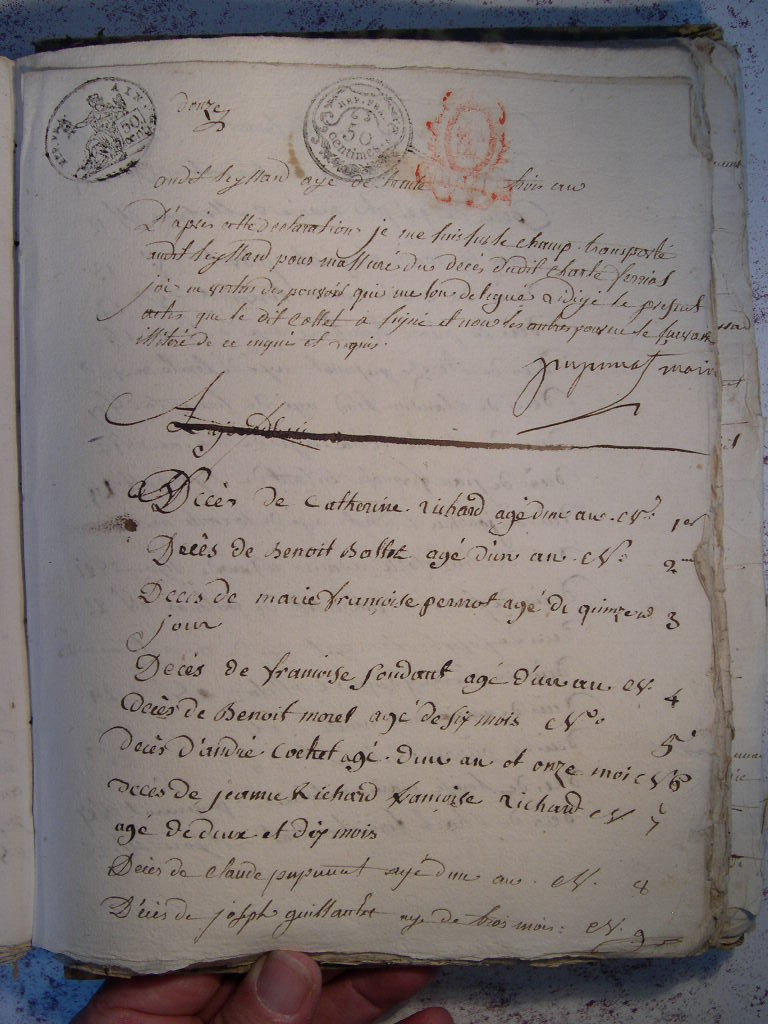 REP. FRA. AIN.
50
douze
REP. FRA.
50
centimes
audit Leyssard agé de trente trois an
D'après cette declaration je me suis sur le champ transporté
audit Leyssard pour m'assuré du deces dudit Charle
jai en vertus des pouvoir qui me son delegué redigé le present
actes que le dit Collet a signé et nous les autres pour ne le savoir
illitéré de ce enquis et requis.
maire
Aujourdhui
Décès de Catherine Richard agé d'un an. N° 1er
Decès de Benoit Ballet agé d'un an. N° 2me
Decès de marie françoise pernot agé de quinze 3
jour
Decès de francoise Soudant agé d'un an N. 4
Decès de Benoit morel agé de six mois N° 5
Decès d'andré Cochet agé d'un an et onze moi N 6
Deces de jeanne Richard francoise Richard N 7
agé de deux et dix mois
Deces de Claude pupunat agé d'un an. N. 8
Décès de joseph guillaubet age de trois mois: N. 9